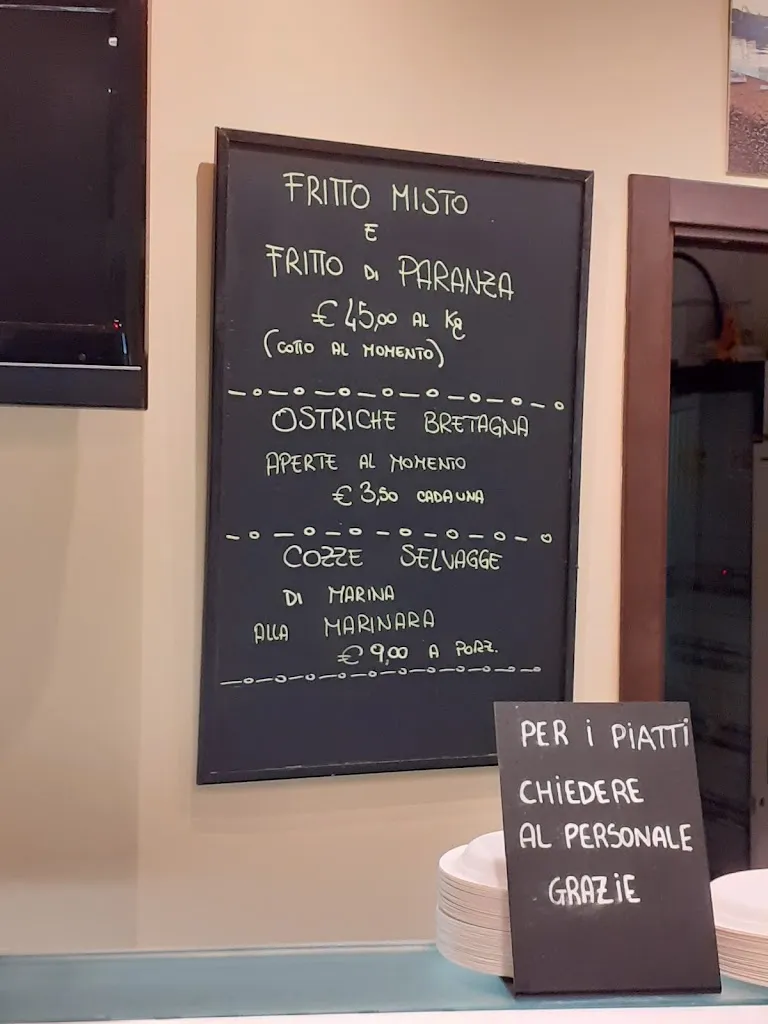 FRITTO MISTO
E
FRITTO DI PARANZA
€ 45,00 AL Kg
(COTTO AL MOMENTO)
OSTRICHE BRETAGNA
APERTE AL MOMENTO
€ 3,50 CADAUNA
COZZE SELVAGGE
DI MARINA
ALLA MARINARA
€ 9,00 A PORZ.
PER i PiATTi
CHiEDERE
AL PERSONALE
GRAZiE